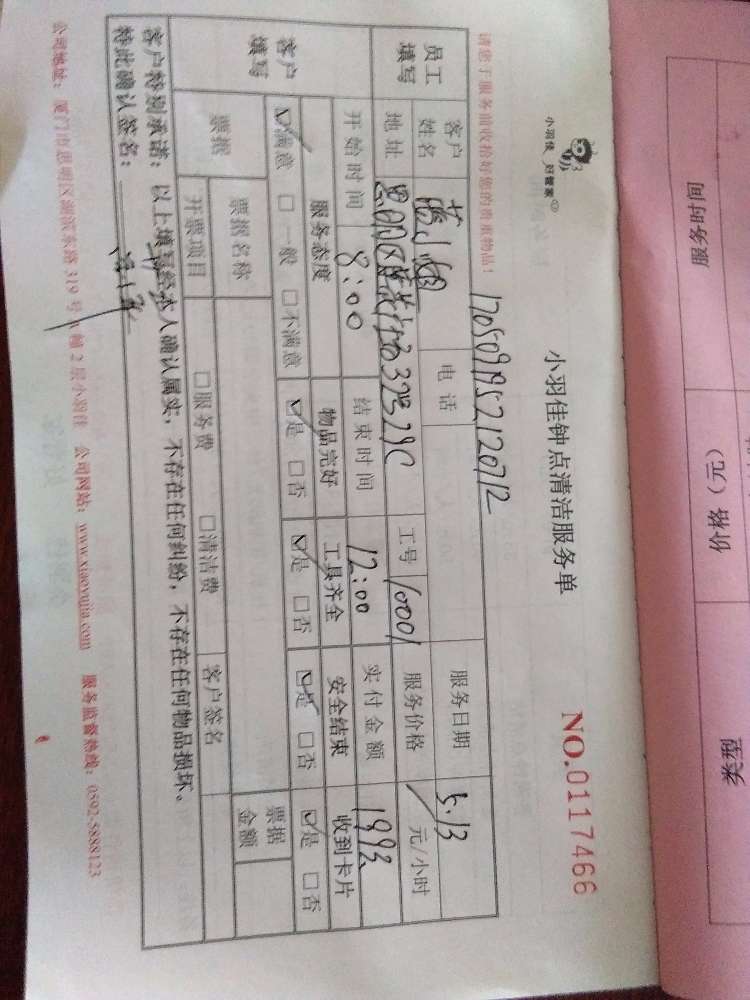 小羽佳 好管家
小羽佳钟点清洁服务单
NO.0117466
请您于服务前收拾好您的贵重物品!
1705091952120712
员工填写
客户姓名
小姐
电话
服务日期
5.13
地址
工号
10001
服务价格
元/小时
开始时间
8:00
结束时间
12:00
实付金额
客户填写
服务态度
物品完好
工具齐全
安全结束
收到卡片
☑满意 □一般 □不满意
☑是 □否
☑是 □否
☑是 □否
☑是 □否
票据
票据名称
票据金额
开票项目
□服务费 □清洁费
客户签名
客户特别承诺:以上填写经本人确认属实,不存在任何纠纷,不存在任何物品损坏。
特此确认签名:
公司地址:厦门市思明区湖滨东路319号A幢2层小羽佳 公司网站:www.xiaoyujia.com 服务监督热线:0592-5888123
服务时间
价格(元)
类型